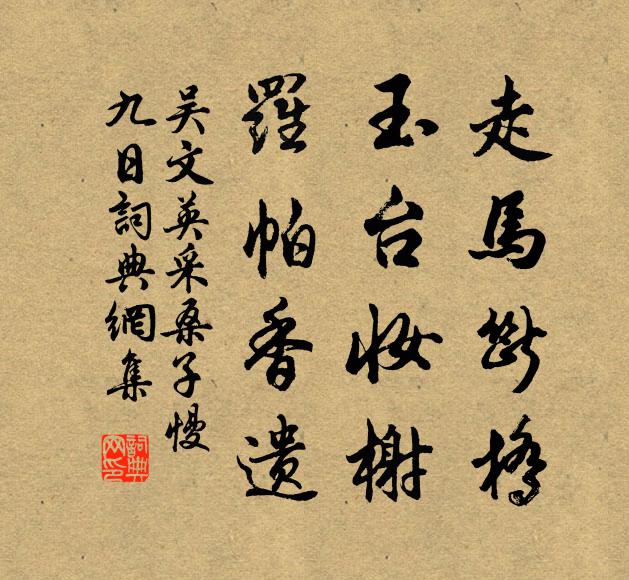 走馬斷橋
玉台妝榭
羅帕香遺
吴文英采桑子慢
九日詞典網集
詞典網印